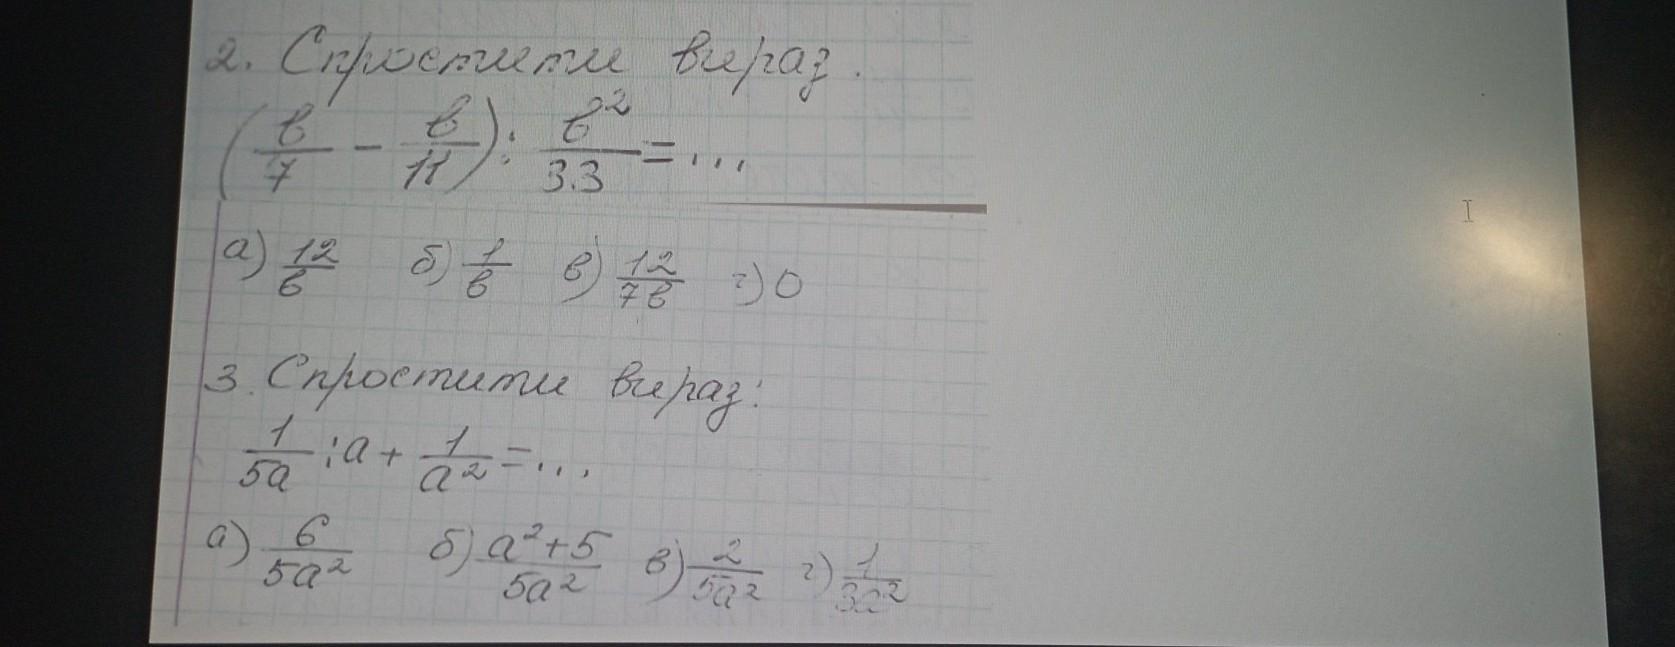 2. Спростити вираз.
(в/7 - в/11) : в²/33 = ...
а) 12/в б) 1/в в) 12/7в г) 0
3. Спростити вираз:
1/5а : а + 1/а² = ...
а) 6/5а² б) а²+5/5а² в) 2/5а² г) 1/3а²